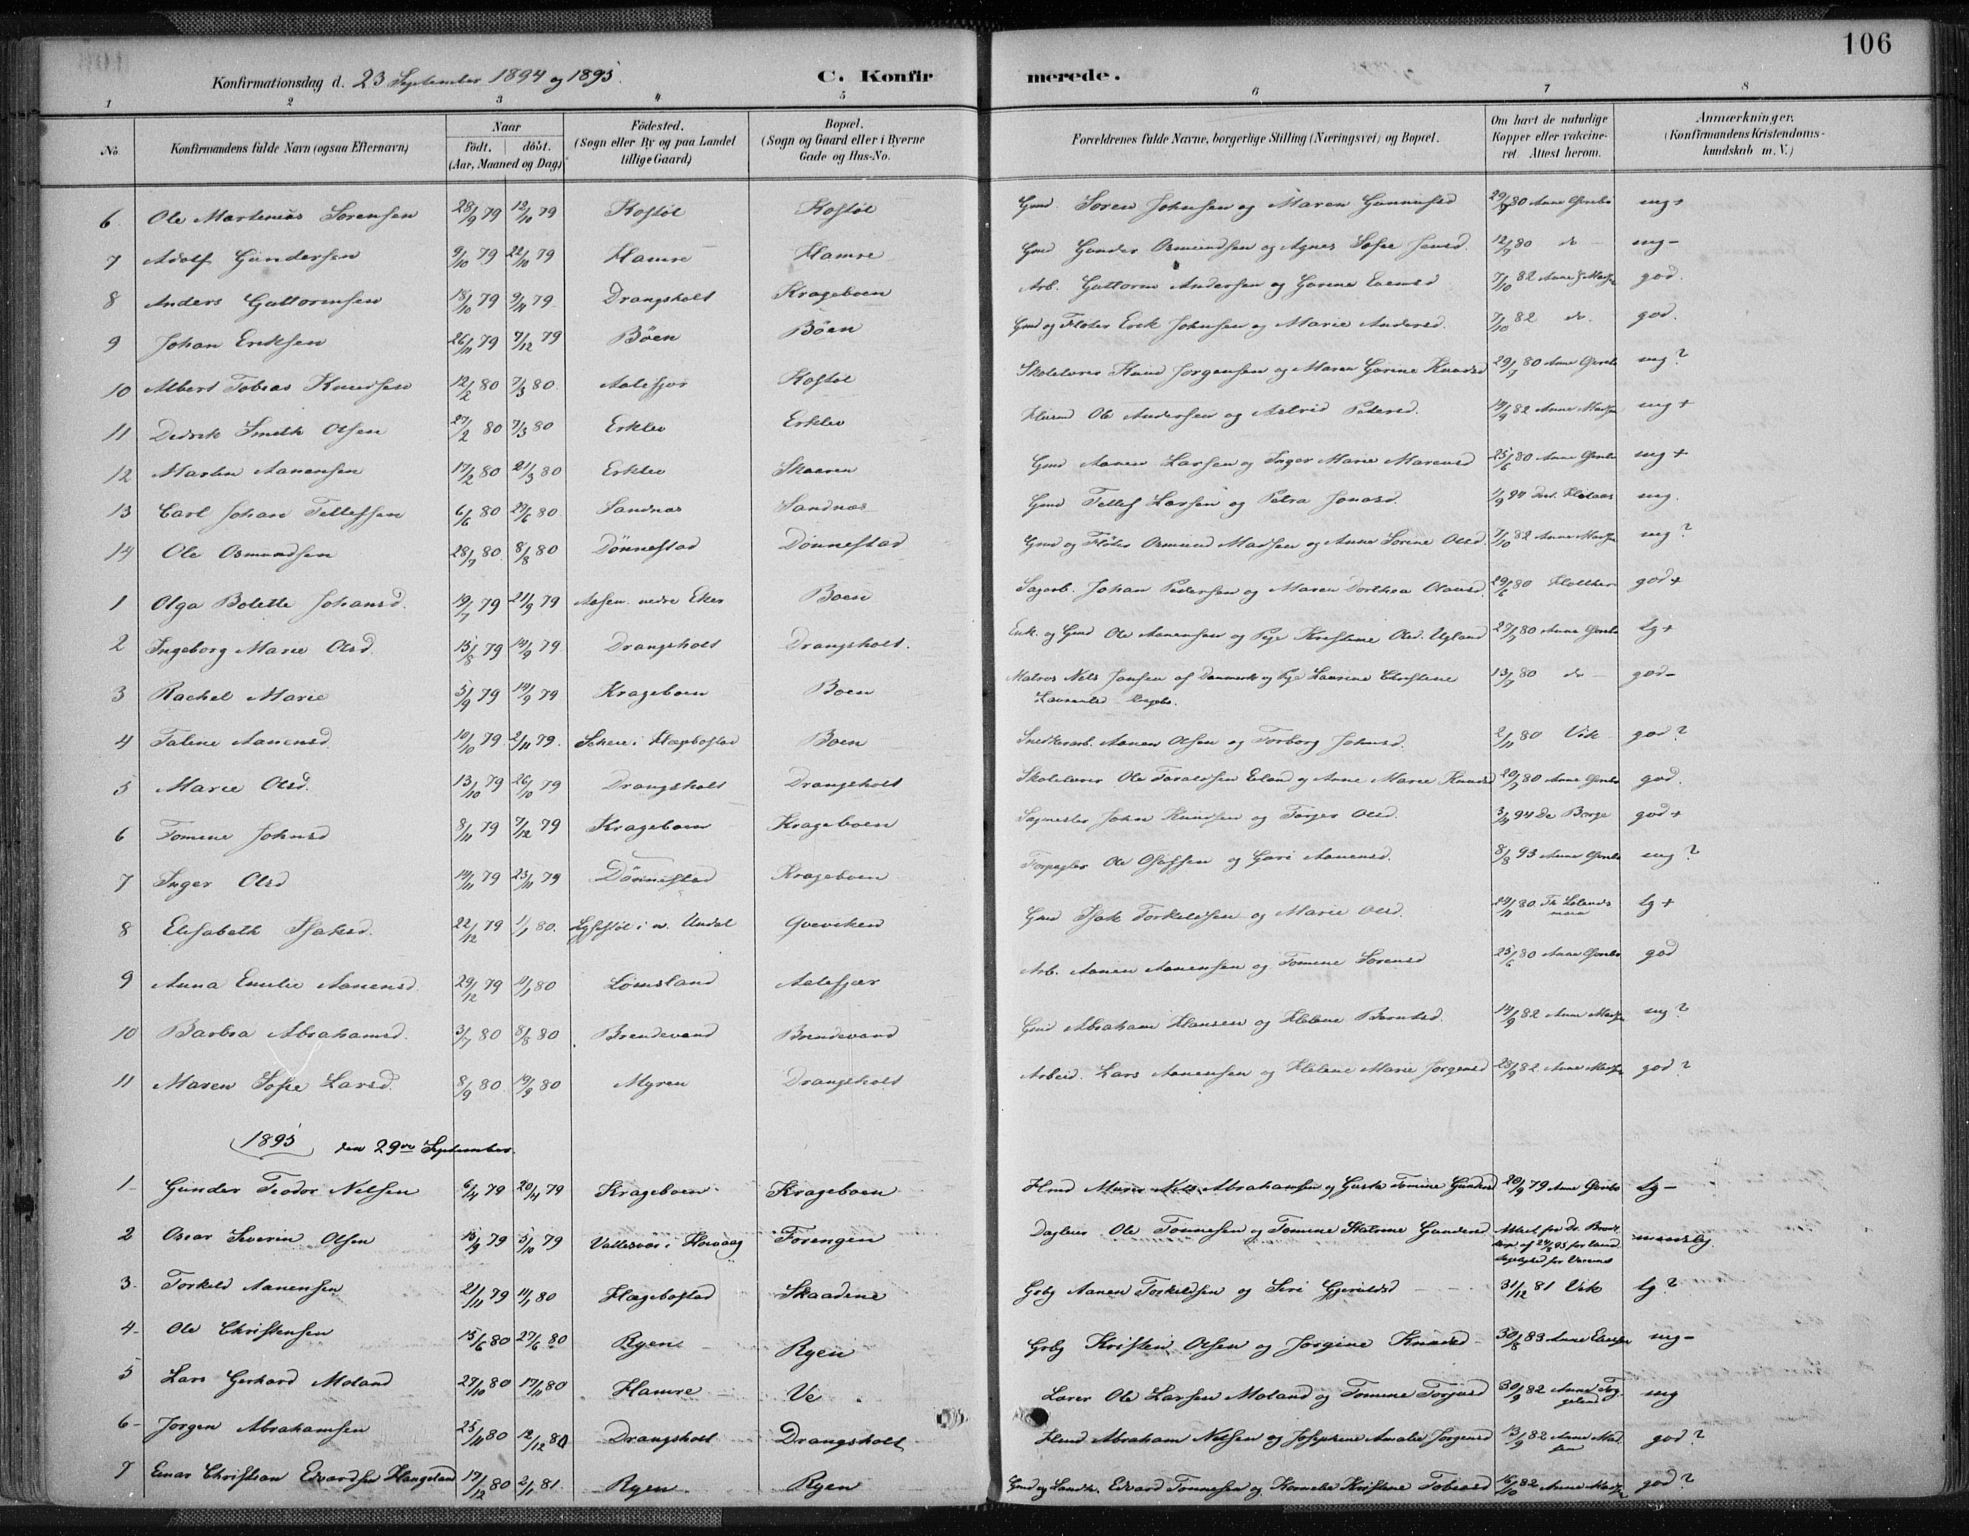 106
Konfirmationsdag d. 23 September 1894 og 1895.
C. Konfirmerede.
1 2 3 4 5 6 7 8
No. Konfirmandens fulde Navn (ogsaa Efternavn) Naar født. døbt. (Aar, Maaned og Dag) Fødested. (Sogn eller By og paa Landet tillige Gaard) Bopæl. (Sogn og Gaard eller i Byerne Gade og Hus-No. Forældrenes fulde Navne, borgerlige Stilling (Næringsvei) og Bopæl. Om havt de naturlige Kopper eller vakcineret. Attest herom. Anmærkninger. (Konfirmandens Kristendomskundskab m. V.)
6 Ole Martinius Sørensen 28/9 79 12/10 79 Kostøl Kostøl Gmd Søren Johnsen og Maren Gunnufsd 80 Anne mg+
7 Adolf Gundersen 9/10 79 22/10 79 Hamre Hamre Gmd Gunder Osmundsen og Agnes Sofie Jensd. 80 do mg-
8 Anders Guttormsen 18/10 79 9/11 79 Drangsholt Krageboen Arb. Guttorm Andersen og Gurine Evensd 7/10 82 Anne god.
9 Johan Eriksen 26/11 79 7/12 79 Bøen Bøen Gmd og Fløter Erik Johnsen og Marie Andersd. 7/10 82 do. god.
10 Albert Tobias Knudsen 12/2 80 7/3 80 Aalefjær Kostøl Skolelærer Knud Jørgensen og Maren Gurine Knudsd 80 Anne mg?
11 Didrik Smith Olsen 27/2 80 7/3 80 Erklev Erklev Husmd Ole Andersen og Astrid Pedersd. 14/9 82 Anne Madsen mg+
12 Martin Aanensen 17/2 80 21/3 80 Erklev Skaaren Gmd Aanen Larsen og Inger Marie Marensd 25/6 80 Anne mg+
13 Carl Johan Tellefsen 6/6 80 29/6 80 Sandnæs Sandnæs Gmd Tellef Larsen og Petra Jonasd. 94 mg.
14 Ole Osmundsen 28/7 80 8/8 80 Dønnestad Dønnestad Gmd og Fløter Osmund Madsen og Anne Sørine Olsd. 7/10 82 Anne mg?
1 Olga Bolette Johansd. 19/7 79 21/9 79 Aasen nedre Eker Boen Sagarb. Johan Pedersen og Maren Dorthea Olausd. 29/6 80 god+
2 Ingeborg Marie Olsd 15/8 79 14/9 79 Drangsholt Drangsholt. Enk. og Gmd Ole Aanensen og Pige Kristine Olsd. Ugland 80 Anne tg+
3 Rachel Marie 5/9 79 14/9 79 Krageboen Boen Matros Nils Jansen af Danmark og Pige Laurine Christene 13/7 80 do god-
4 Taline Aanensd. 10/10 79 2/11 79. i Hægebostad Boen Snedkerarb. Aanen Olsen og Torborg Johnsd. 2/11 80 Vik god?
5 Marie Olsd. 13/10 79 26/10 79 Drangsholt Drangsholt Skolelærer Ole Taraldsen Eeland og Anne Marie Knudsd 80 Anne god.
6 Tomine Johnsd 8/11 79 7/12 79 Krageboen Krageboen Sagmester John Knudsen og Torger Olsd. 94 Borge god+
7 Inger Olsd 14/11 79 23/11 79 Dønnestad Krageboen Forpagter Ole Olafsen og Guri Aanensd. 8/8 93 Anne mg?
8 Elisabeth Isaksd. 22/12 79 1/1 80. i n. Undal Qveviken Gmd Isak Torkeldsen og Marie Olsd. 80 tg+
9 Anna Emilie Aanensd. 29/12 79 4/1 80 Lømsland Aalefjær Arb. Aanen Aanensen og Tomine Sørensd 25/6 80 Anne god
10 Barbra Abrahamsd. 3/7 80 8/8 80 Brendevand Brendevand Gmd Abraham Hansen og Helene Berntsd. 14/9 82 Anne mg?
11 Maren Sofie Larsd. 8/9 80 19/9 80 Myren Drangsholt Arbeid. Lars Aanensen og Helene Marie Jørgensd 82 Anne god?
1895 den 29de September.
1 Gunder Teodor Nilsen 6/4 79 20/4 79 Krageboen Krageboen Hmd Nils Abrahamsen og Tomine Gundersd 20/9 79 Anne tg-
2 Oscar Severin Olsen 15/9 79 5/10 79 i Høvaag Forengen Dagløn. Ole Tønnesen og Tomine Gundersd. Attest fra Dr.
3. Torkeld Aanensen 21/11 79 80 Hægebostad Skaadene Grbg Aanen Torkeldsen og Siri Gjeruldsd 31/12 81 Vik tg?
4 Ole Christensen 15/6 80 27/6 80 Ryen Ryen Grbg Kristen Olsen og Jørgine Knudsd 30/8 83 Anne mg-
5 Lars Gerhard Moland 27/10 80 17/11 80 Hamre Ve Lærer Ole Larsen Moland og Tomine Torjusd 30/9 82 Anne mg
6 Jørgen Abrahamsen 25/11 80 12/12 80 Drangsholt Drangsholt Hmd Abraham Nilsen og Josephine Amalie Jørgensd 13/9 82 Anne Madsen god?
7 Einar Christian Edvardsen Haugeland 17/12 80 2/1 81. Ryen Ryen Gmd og Edvard Tønnesen og Kornelia Kristine Tobiasd 16/10 82 Anne god?